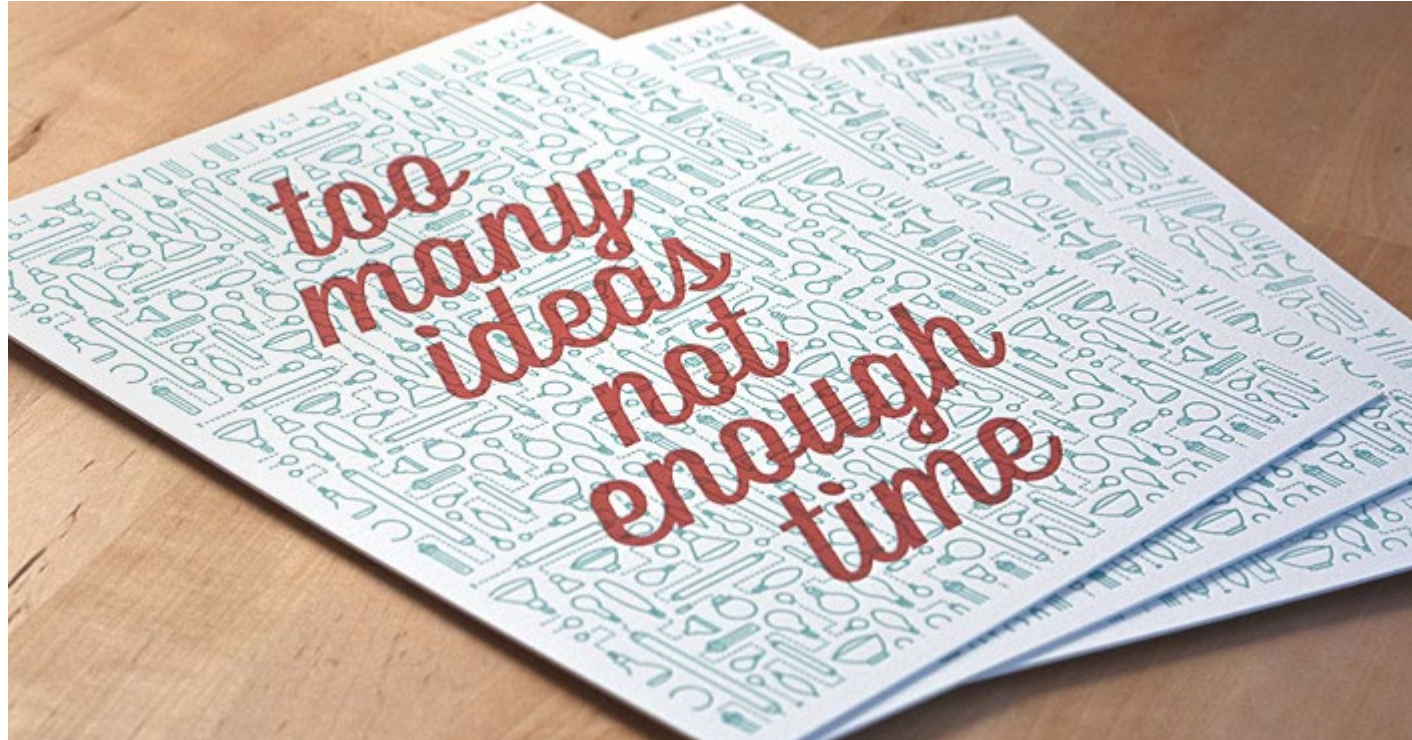 too
many
ideas
not
enough
time